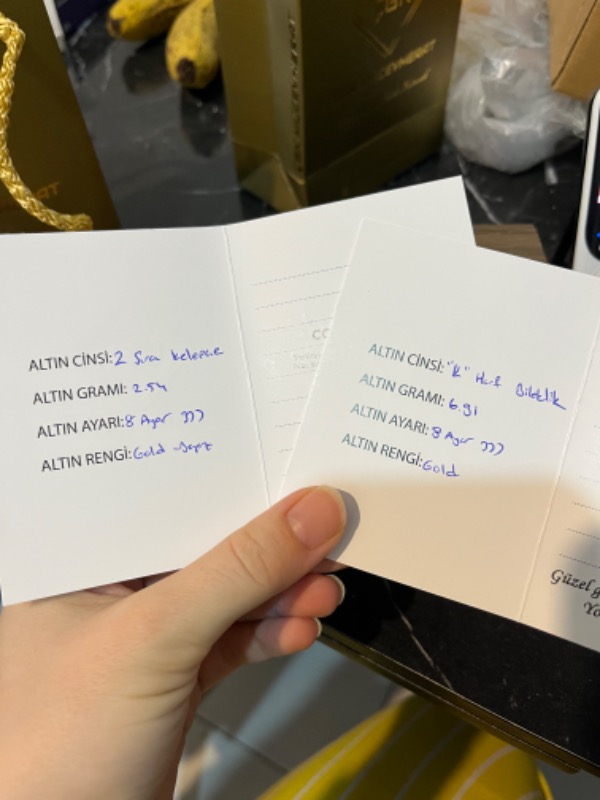 ALTIN CİNSİ: 2 Sıra kelepçe
ALTIN GRAMI: 2.54
ALTIN AYARI: 8 Ayar 333
ALTIN RENGİ: Gold - Beyaz
ALTIN CİNSİ: "K" Harf Bileklik
ALTIN GRAMI: 6.91
ALTIN AYARI: 8 Ayar 333
ALTIN RENGİ: Gold
Güzel g
Yo